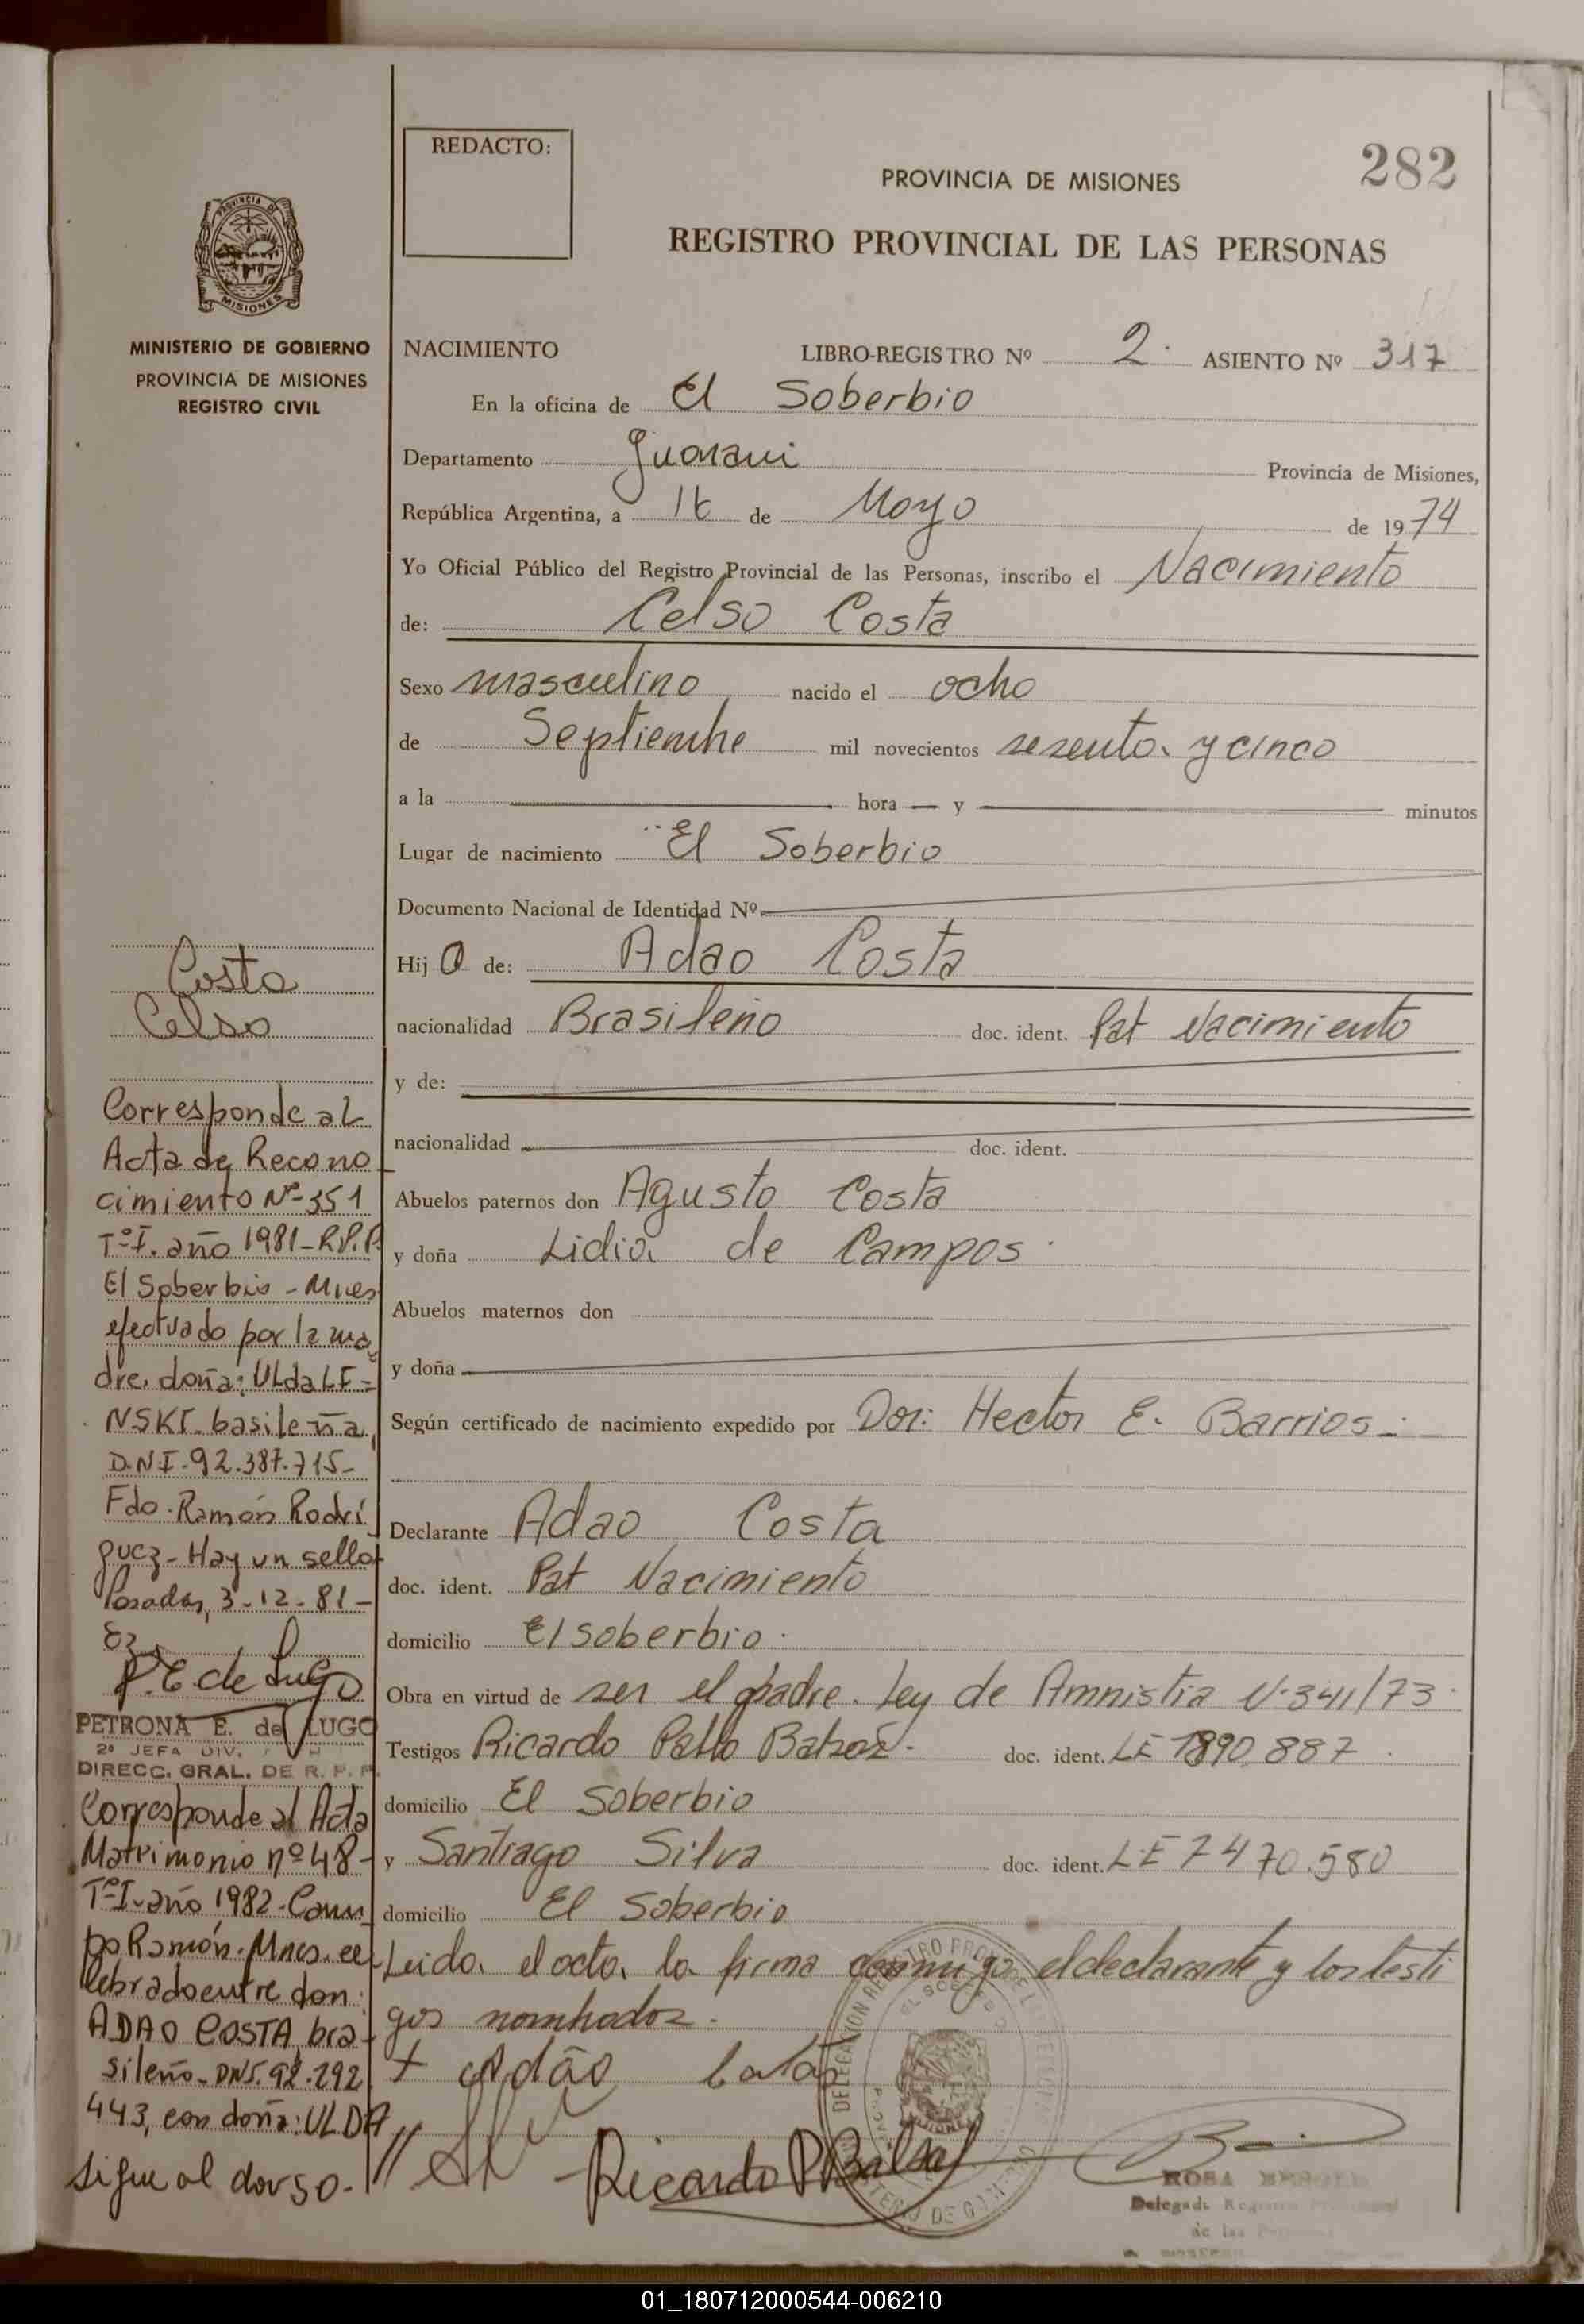 REDACTO:
282
PROVINCIA DE MISIONES
REGISTRO PROVINCIAL DE LAS PERSONAS
PROVINCIA DE
MISIONES
MINISTERIO DE GOBIERNO
PROVINCIA DE MISIONES
REGISTRO CIVIL
NACIMIENTO LIBRO-REGISTRO Nº 2. ASIENTO Nº 317
En la oficina de El Soberbio
Departamento Guarani Provincia de Misiones,
República Argentina, a de Mayo de 1974
Yo Oficial Público del Registro Provincial de las Personas, inscribo el Nacimiento
de: Celso Costa
Sexo masculino nacido el ocho
de Septiembre mil novecientos sesenta y cinco
a la hora y minutos
Lugar de nacimiento El Soberbio
Documento Nacional de Identidad Nº
Hijo de: Adao Costa
nacionalidad Brasileño doc. ident. Pat Nacimiento
y de:
nacionalidad doc. ident.
Abuelos paternos don Agusto Costa
y doña Lidia de Campos
Abuelos maternos don
y doña
Según certificado de nacimiento expedido por Dor: Hector E. Barrios
Declarante Adao Costa
doc. ident. Pat Nacimiento
domicilio El soberbio
Obra en virtud de ser el padre. Ley de Amnistia N. 341/73
Testigos Ricardo doc. ident. LE 7890.887
domicilio El Soberbio
y Santiago Silva doc. ident. LE 7470.580
domicilio El Soberbio
Leida el acta la firma conmigo el declarante y los testi
gos nombrados.
Costa
Celso
Corresponde al
Acta de Recono
cimiento Nº 351
Tº I. año 1981-R.P.P.
El Soberbio - Mnes
efectuado por la ma
dre, doña: ULda LE=
NSKI. basileña,
D.N.I. 92.387.715-
Fdo. Ramón Rodrí
guez - Hay un sello
Posadas, 3-12-81-
P.E. de Lugo
PETRONA E. de LUGO
2º JEFA DIV.
DIRECC. GRAL. DE R. P. P.
Corresponde al Acta
Matrimonio nº 48-
Tº I - año 1982 - Cam
po Ramón. Mnes. ce
lebrado entre don:
ADAO COSTA bra-
sileño - DNI. 92.292
443, con doña: ULDA
sigue al dorso. //
+ Adão
Ricardo P Balsa
ROSA
01_180712000544-006210